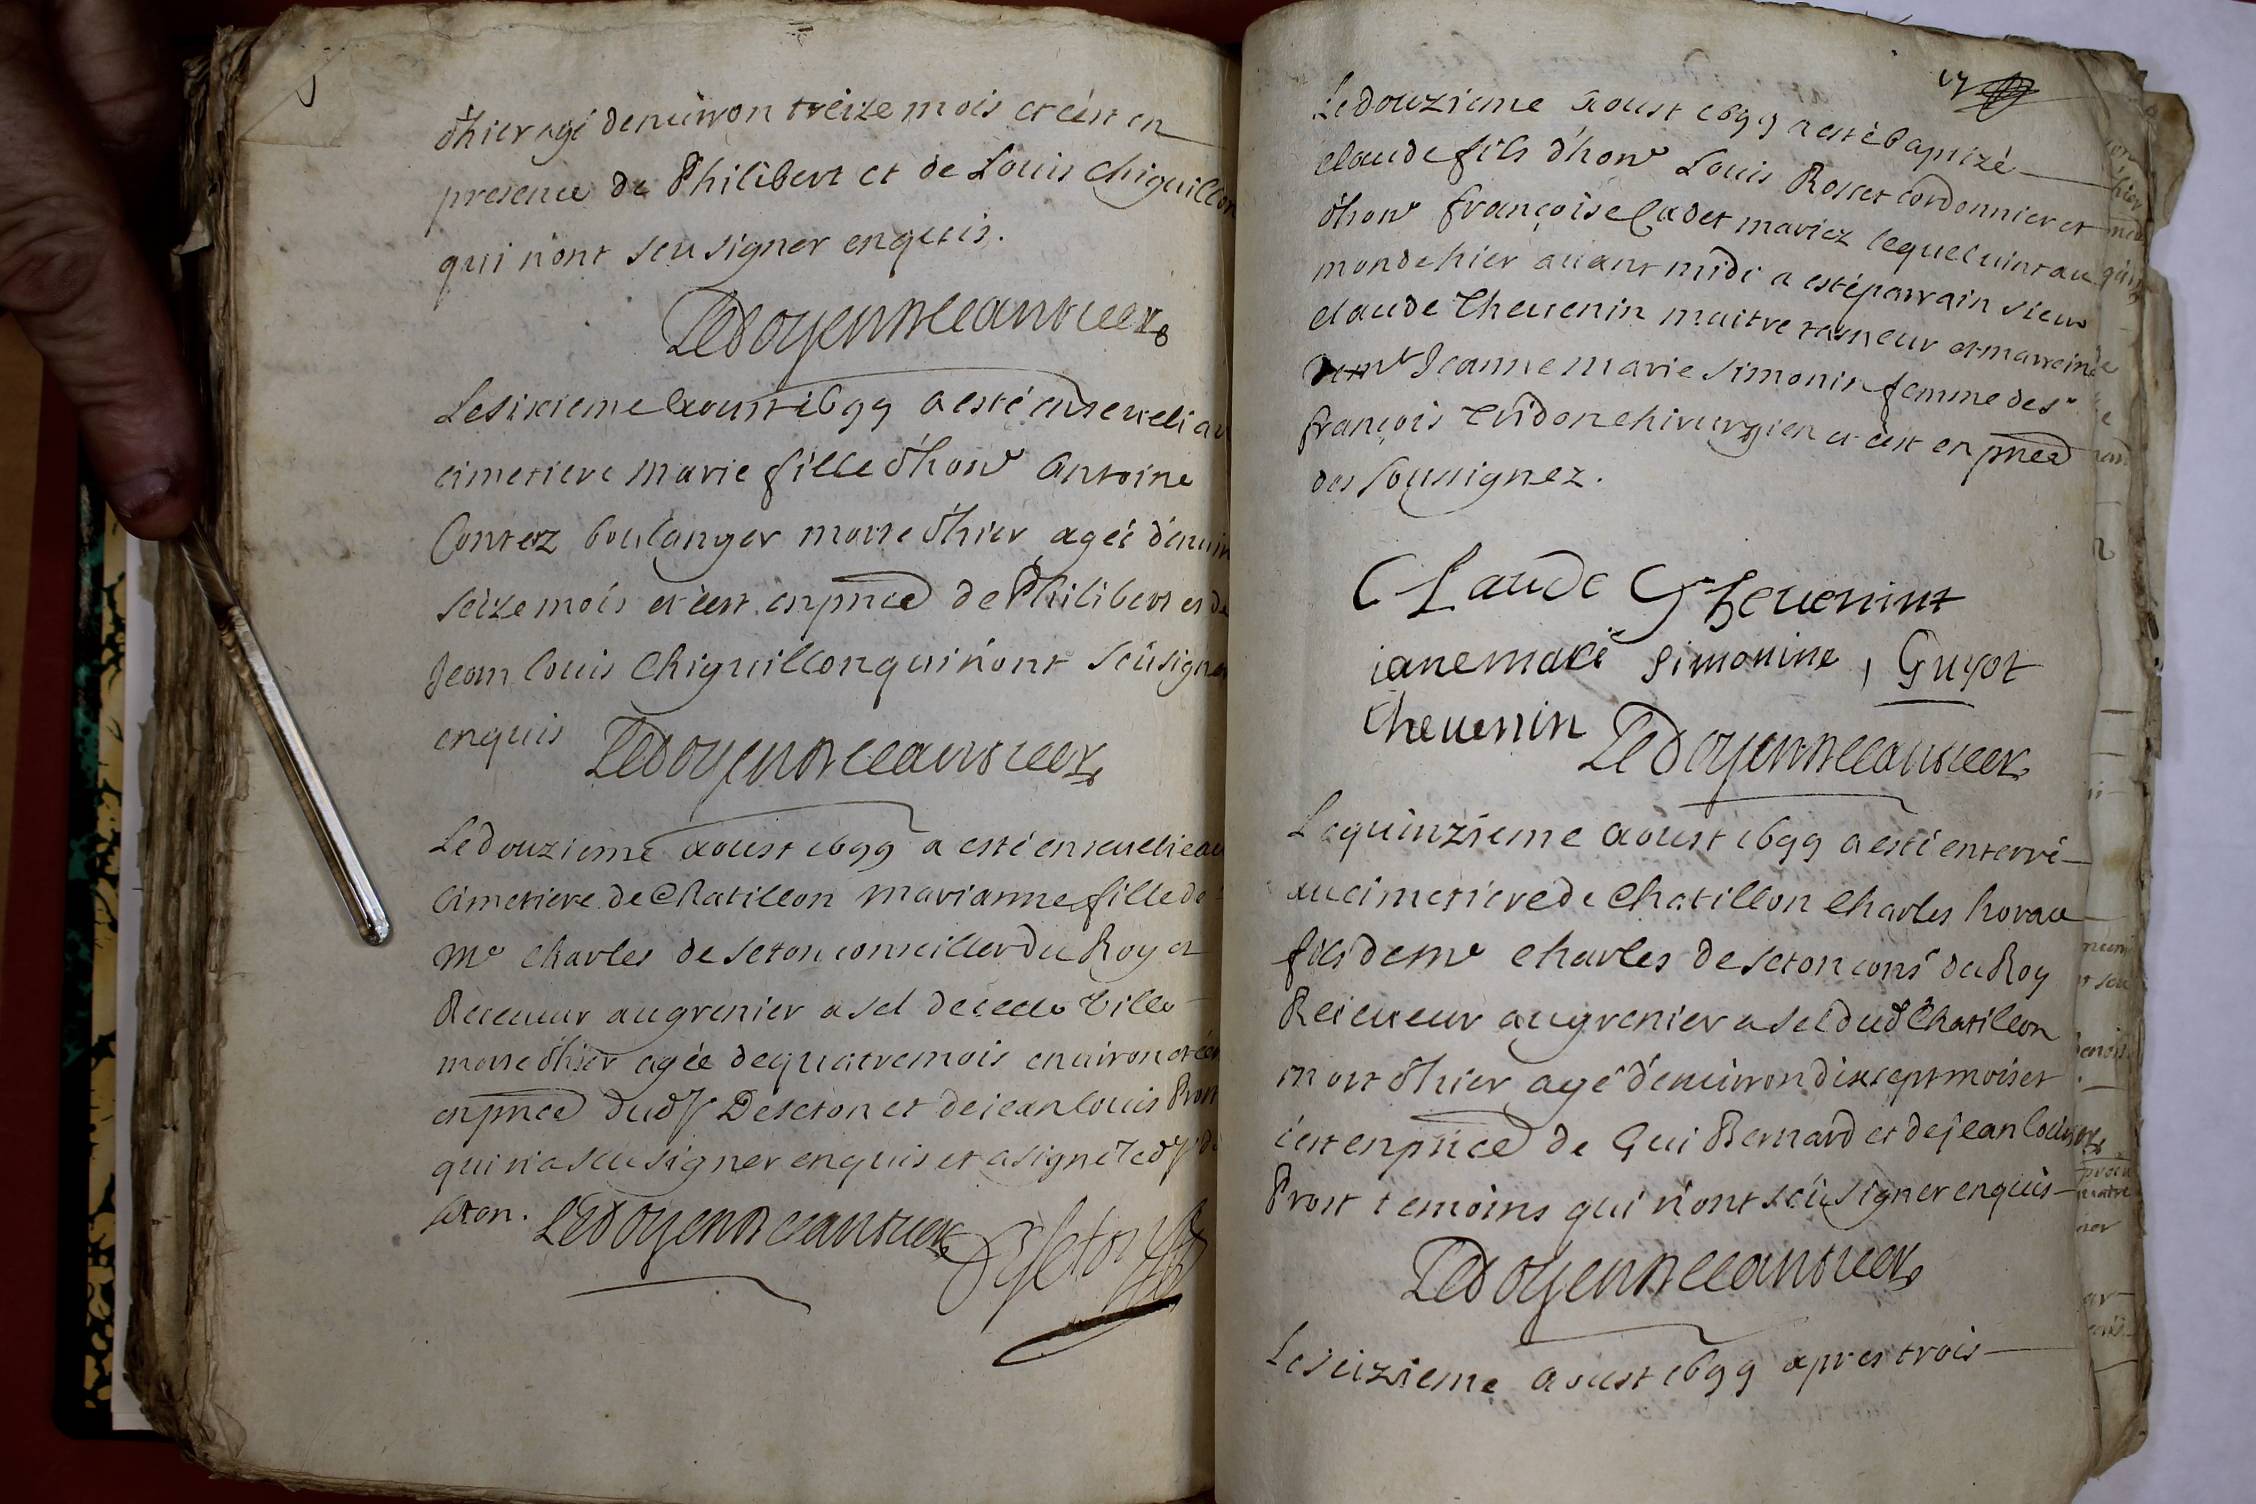 d'hier agé denuiron treize mois et c'est en
presence de Philibert et de Louis Chiquillon
qui n'ont sçu signer enquis.
Le sixieme Aoust 1699 a esté enseueli au
cimetiere Marie fille d'hon^e Antoine
Contez boulanger morte d'hier ageé d'enuir
seize mois et c'est en pnce de Philibert et de
Jean Louis Chiquillon qui n'ont sçu signer
enquis
Le douzieme aoust 1699 a esté enseuelie au
Cimetiere de Chatillon Marianne fille de
M^e Charles de Seton conseiller du Roy et
Receueur au grenier a sel de cette Ville
morte d'hier agée de quatre mois enuiron et c'est
en pnce dud^s^r De Seton et de jean Louis Prost
qui n'a sçu signer enquis et a signé led^s^r de
Seton.
17
Le douzieme Aoust 1699 a esté baptizé
Claude fils d'hon^e Louis Rosset Cordonnier et
d'hon^e françoise Cadet mariez lequel vint au
monde hier auant midi a esté parrain sieur
Claude Theuenin maitre tanneur et marreine
Jeanne Marie Simonin femme de s^r
françois chirurgien et c'est en pnce
des soussignez.
Claude Theuenint
iane marië simonine, Guyot
Theuenin
Le quinzieme aoust 1699 a esté enterré
au cimetiere de Chatillon Charles horau
fils de M^e Charles de Seton cons^r du Roy
Receueur au grenier a sel dud Chatillon
mort d'hier agé d'enuiron dixsept mois et
c'est en pnce de Gui Bernard et de jean Louis
Prost temoins qui n'ont sçu signer enquis
Le seizieme aoust 1699 apres trois